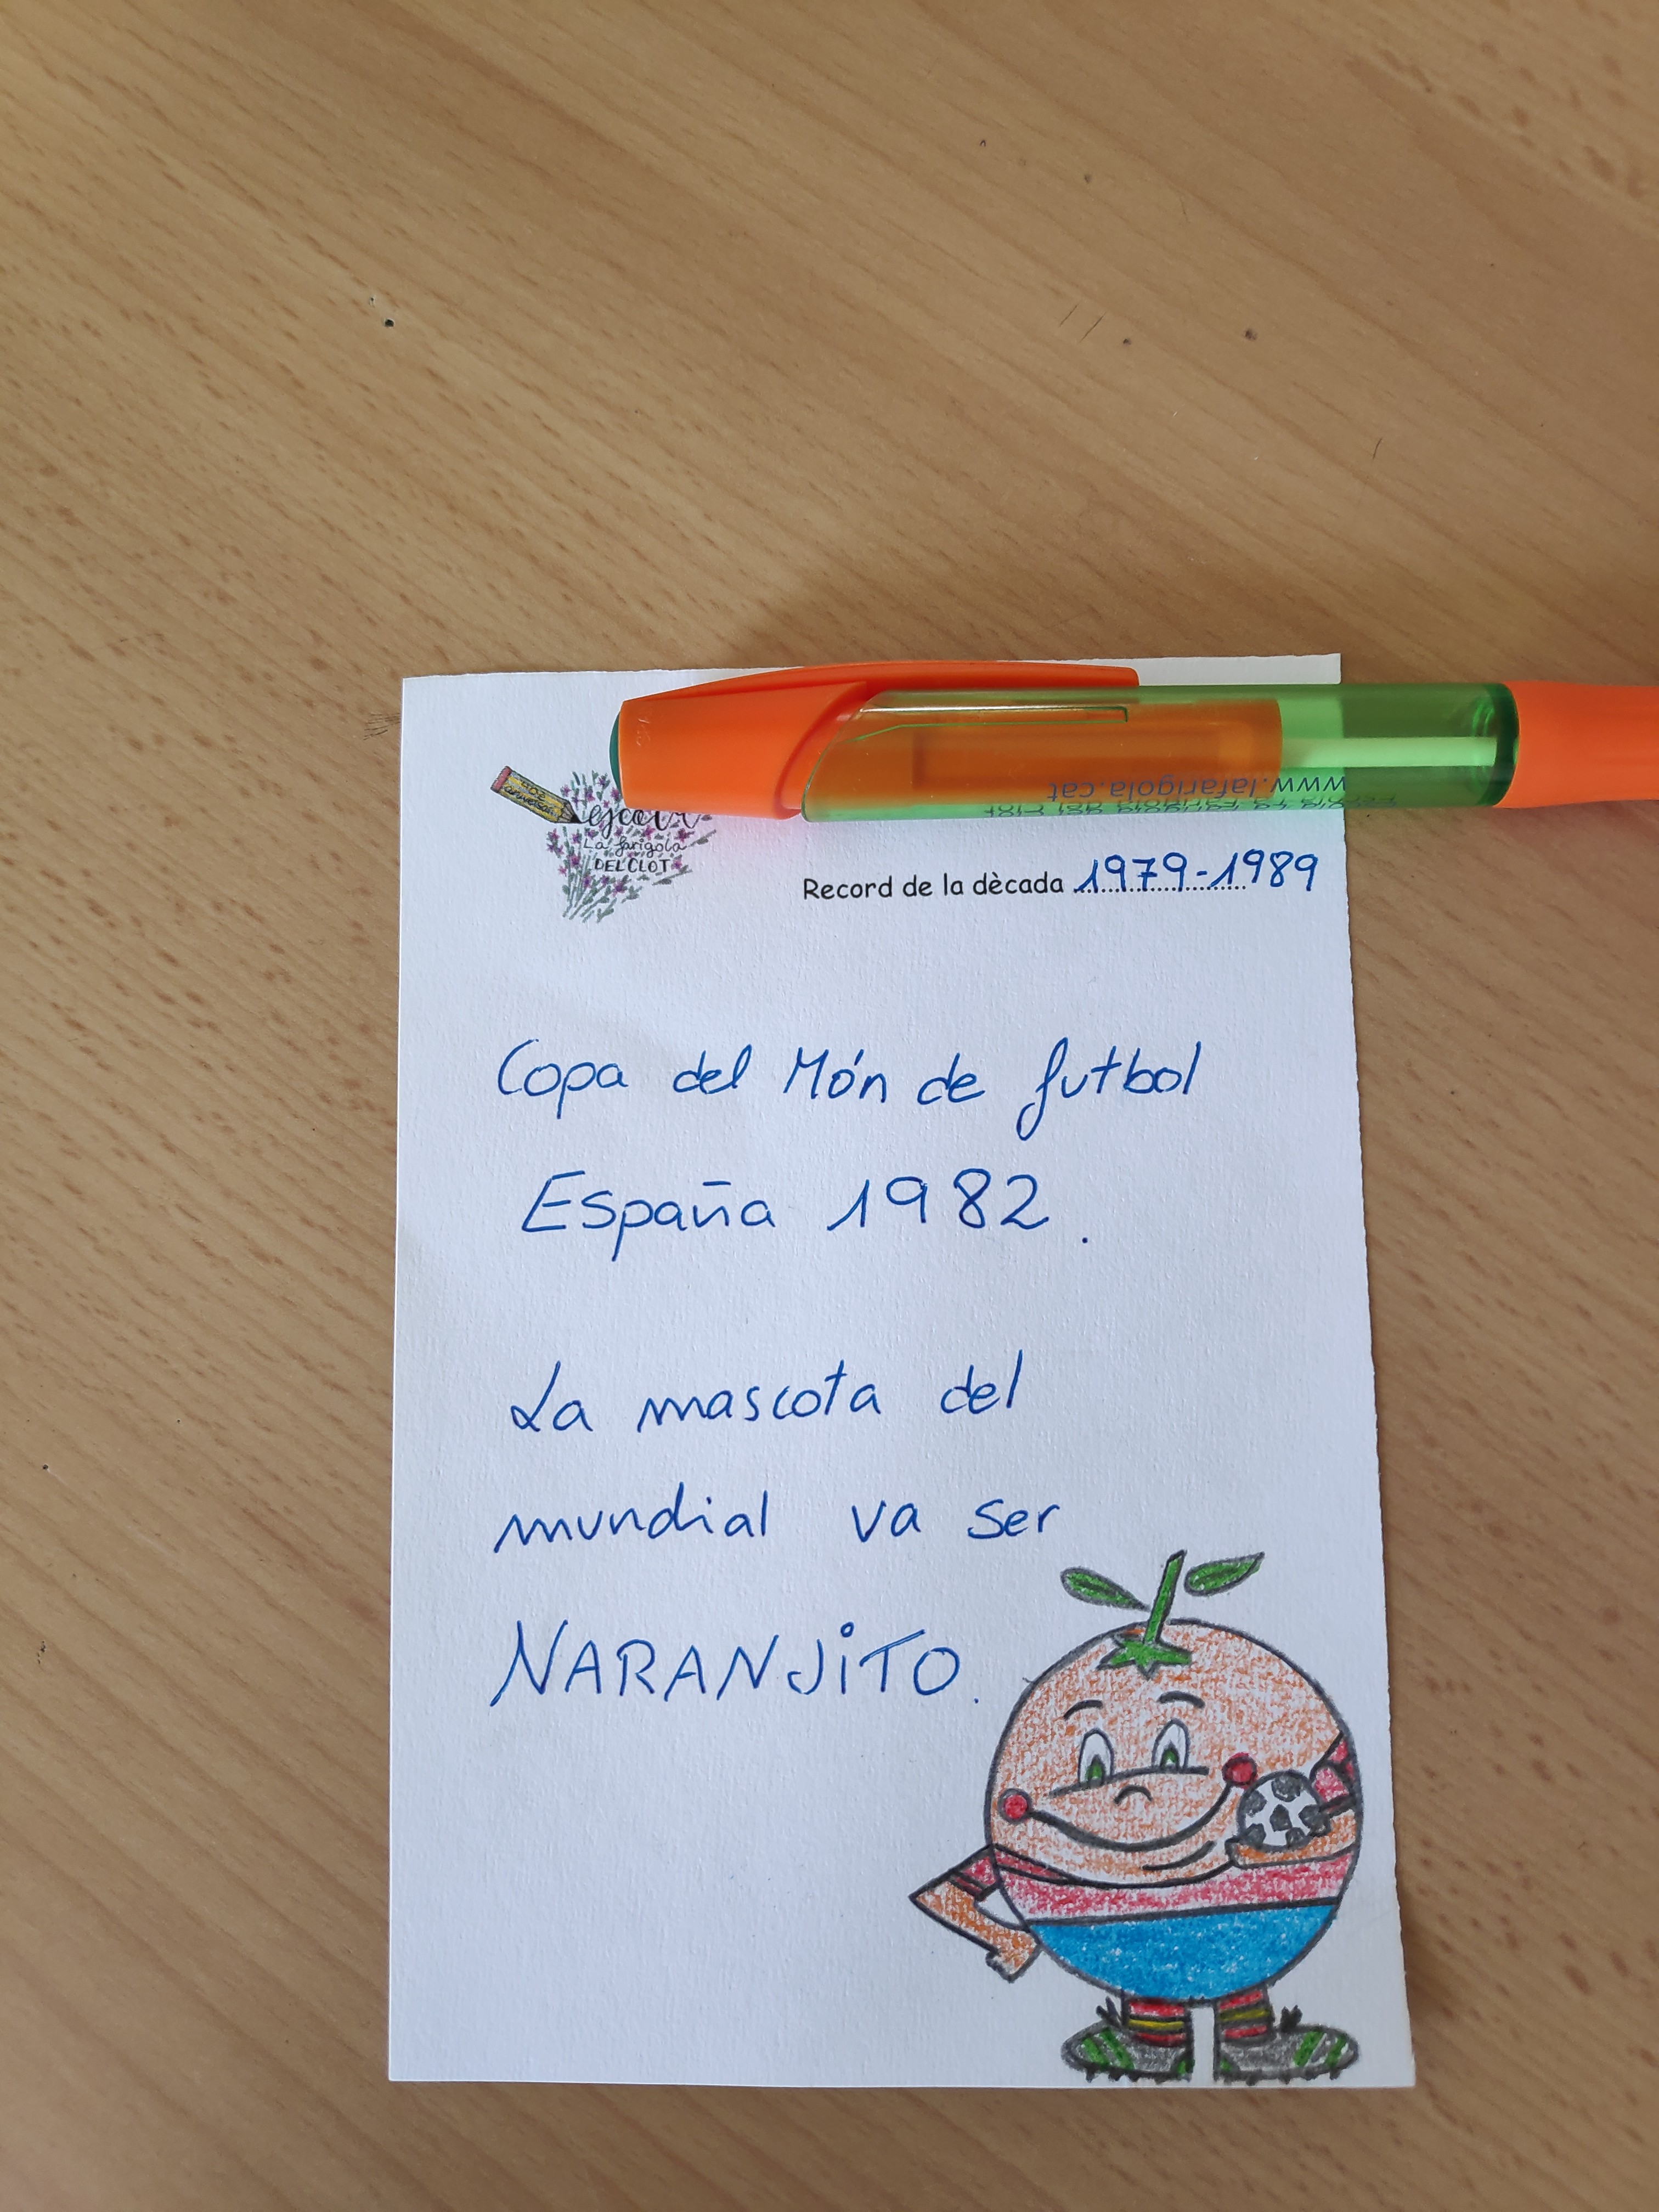 www.lafarigola.cat
La farigola
DEL CLOT
Record de la dècada 1979-1989
Copa del Món de futbol
España 1982.
La mascota del
mundial va ser
NARANJiTO.